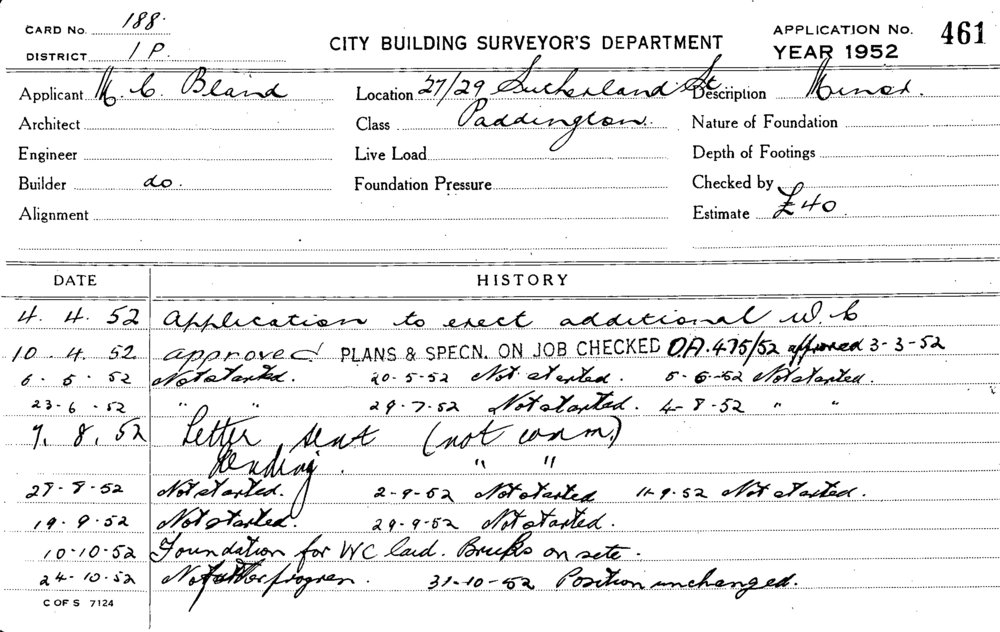 CARD No. 188.
DISTRICT 1 P.
CITY BUILDING SURVEYOR'S DEPARTMENT
APPLICATION No. 461
YEAR 1952
Applicant M. C. Bland Location 27/29 Sutherland St Description Minor.
Architect Class Paddington. Nature of Foundation
Engineer Live Load Depth of Footings
Builder do. Foundation Pressure Checked by
Alignment Estimate £40
DATE HISTORY
4. 4. 52 Application to erect additional W.C
10. 4. 52 approved PLANS & SPECN. ON JOB CHECKED O.A. 475/52 approved 3-3-52
6. 5. 52 Not started. 20-5-52 Not started. 5-6-52 Not started.
23-6-52 " " 29-7-52 Not started. 4-8-52 " "
7. 8. 52 Letter sent (not comm.)
Pending. " "
27-8-52 Not started. 2-9-52 Not started 11-9-52 Not started.
19-9-52 Not started. 29-9-52 Not started.
10-10-52 Foundation for WC laid. Bricks on site.
24-10-52 No further progress. 31-10-52 Position unchanged.
C OF S 7124